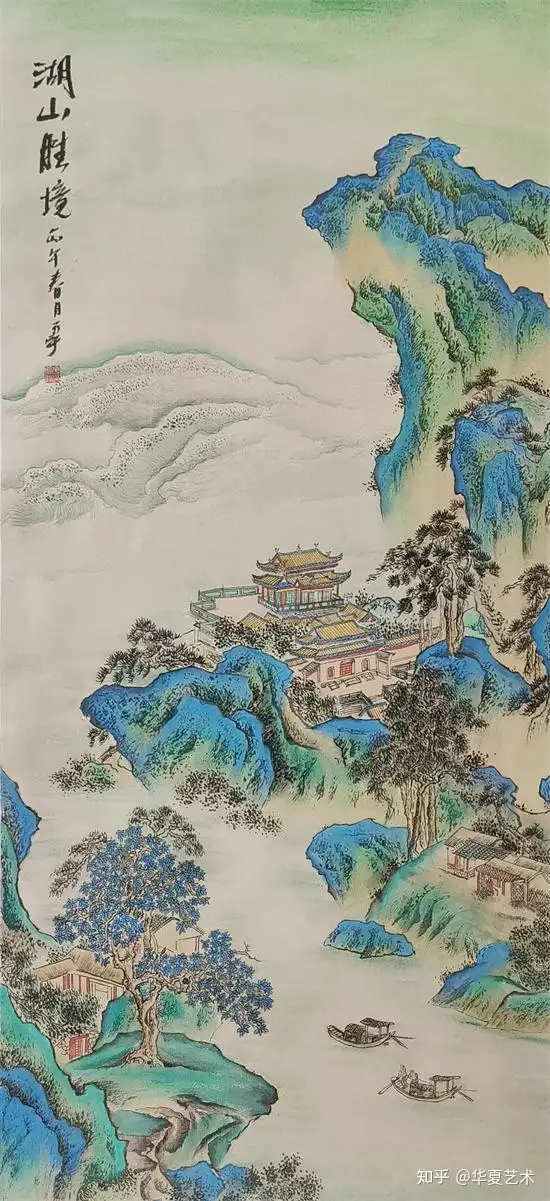 湖山胜境
丙午春月
知乎 @华夏艺术